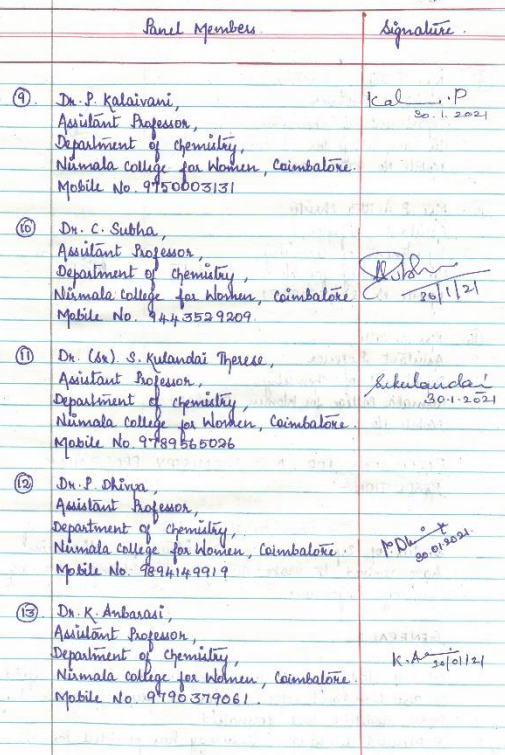 Panel Members Signature.
(9). Dr. P. Kalaivani, Kal P
Assistant Professor, 30.1.2021
Department of Chemistry,
Nirmala College for Women, Coimbatore.
Mobile No. 9750003131
(10) Dr. C. Subha,
Assistant Professor,
Department of Chemistry, Subha
Nirmala College for Women, Coimbatore 30/1/21
Mobile No. 9443529209.
(11) Dr. (Sr). S. Kulandai Therese,
Assistant Professor, Srkulandai
Department of Chemistry, 30.1.2021
Nirmala College for Women, Coimbatore.
Mobile No. 9789565026
(12) Dr. P. Dhivya,
Assistant Professor,
Department of Chemistry, P. Dhi
Nirmala College for Women, Coimbatore. 30.01.2021.
Mobile No. 9894149919
(13) Dr. K. Anbarasi,
Assistant Professor,
Department of Chemistry, K. A 30/01/21
Nirmala College for Women, Coimbatore.
Mobile No. 9790379061.